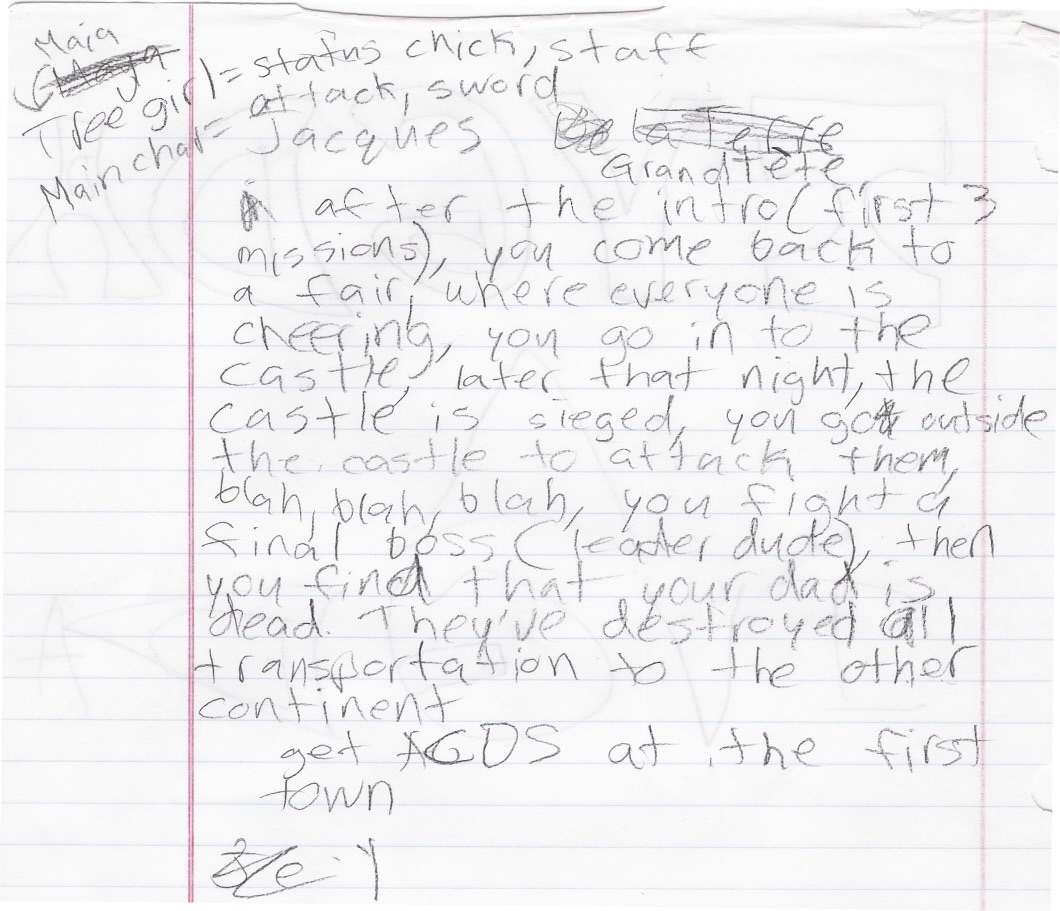 Maia
Tree girl = status chick, staff
attack, sword
Main char = Jacques
GrandTête
after the intro (first 3
missions), you come back to
a fair, where everyone is
cheering, you go in to the
castle, later that night, the
castle is sieged, you go outside
the castle to attack them,
blah, blah, blah, you fight a
final boss (leader dude), then
you find that your dad is
dead. They've destroyed all
transportation to the other
continent
get AGDS at the first
town